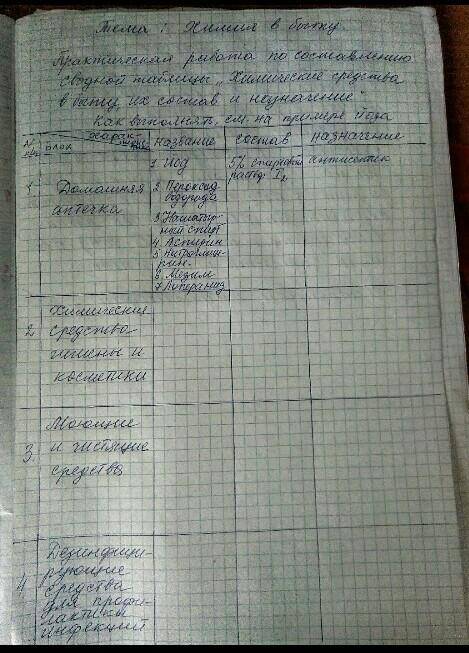 Тема: Химия в быту.
Практическая работа по составлению
сводной таблицы „Химические средства
в быту, их состав и назначение"
Как выполнять, см. на примере йода
№ блок характ- название состав назначение
1 Домашняя аптечка
1 Йод 5% спиртовой антисептик
раствор I2
2. Пероксид
водорода
3 Нашатыр-
ный спирт
4. Аспирин
5 Нитроглице-
рин.
6. Мезим
7 Лоперамид
2 Химические
средства
гигиены и
косметики
3. Моющие
и чистящие
средства
4 Дезинфици-
рующие
средства
для профи-
лактики
инфекций